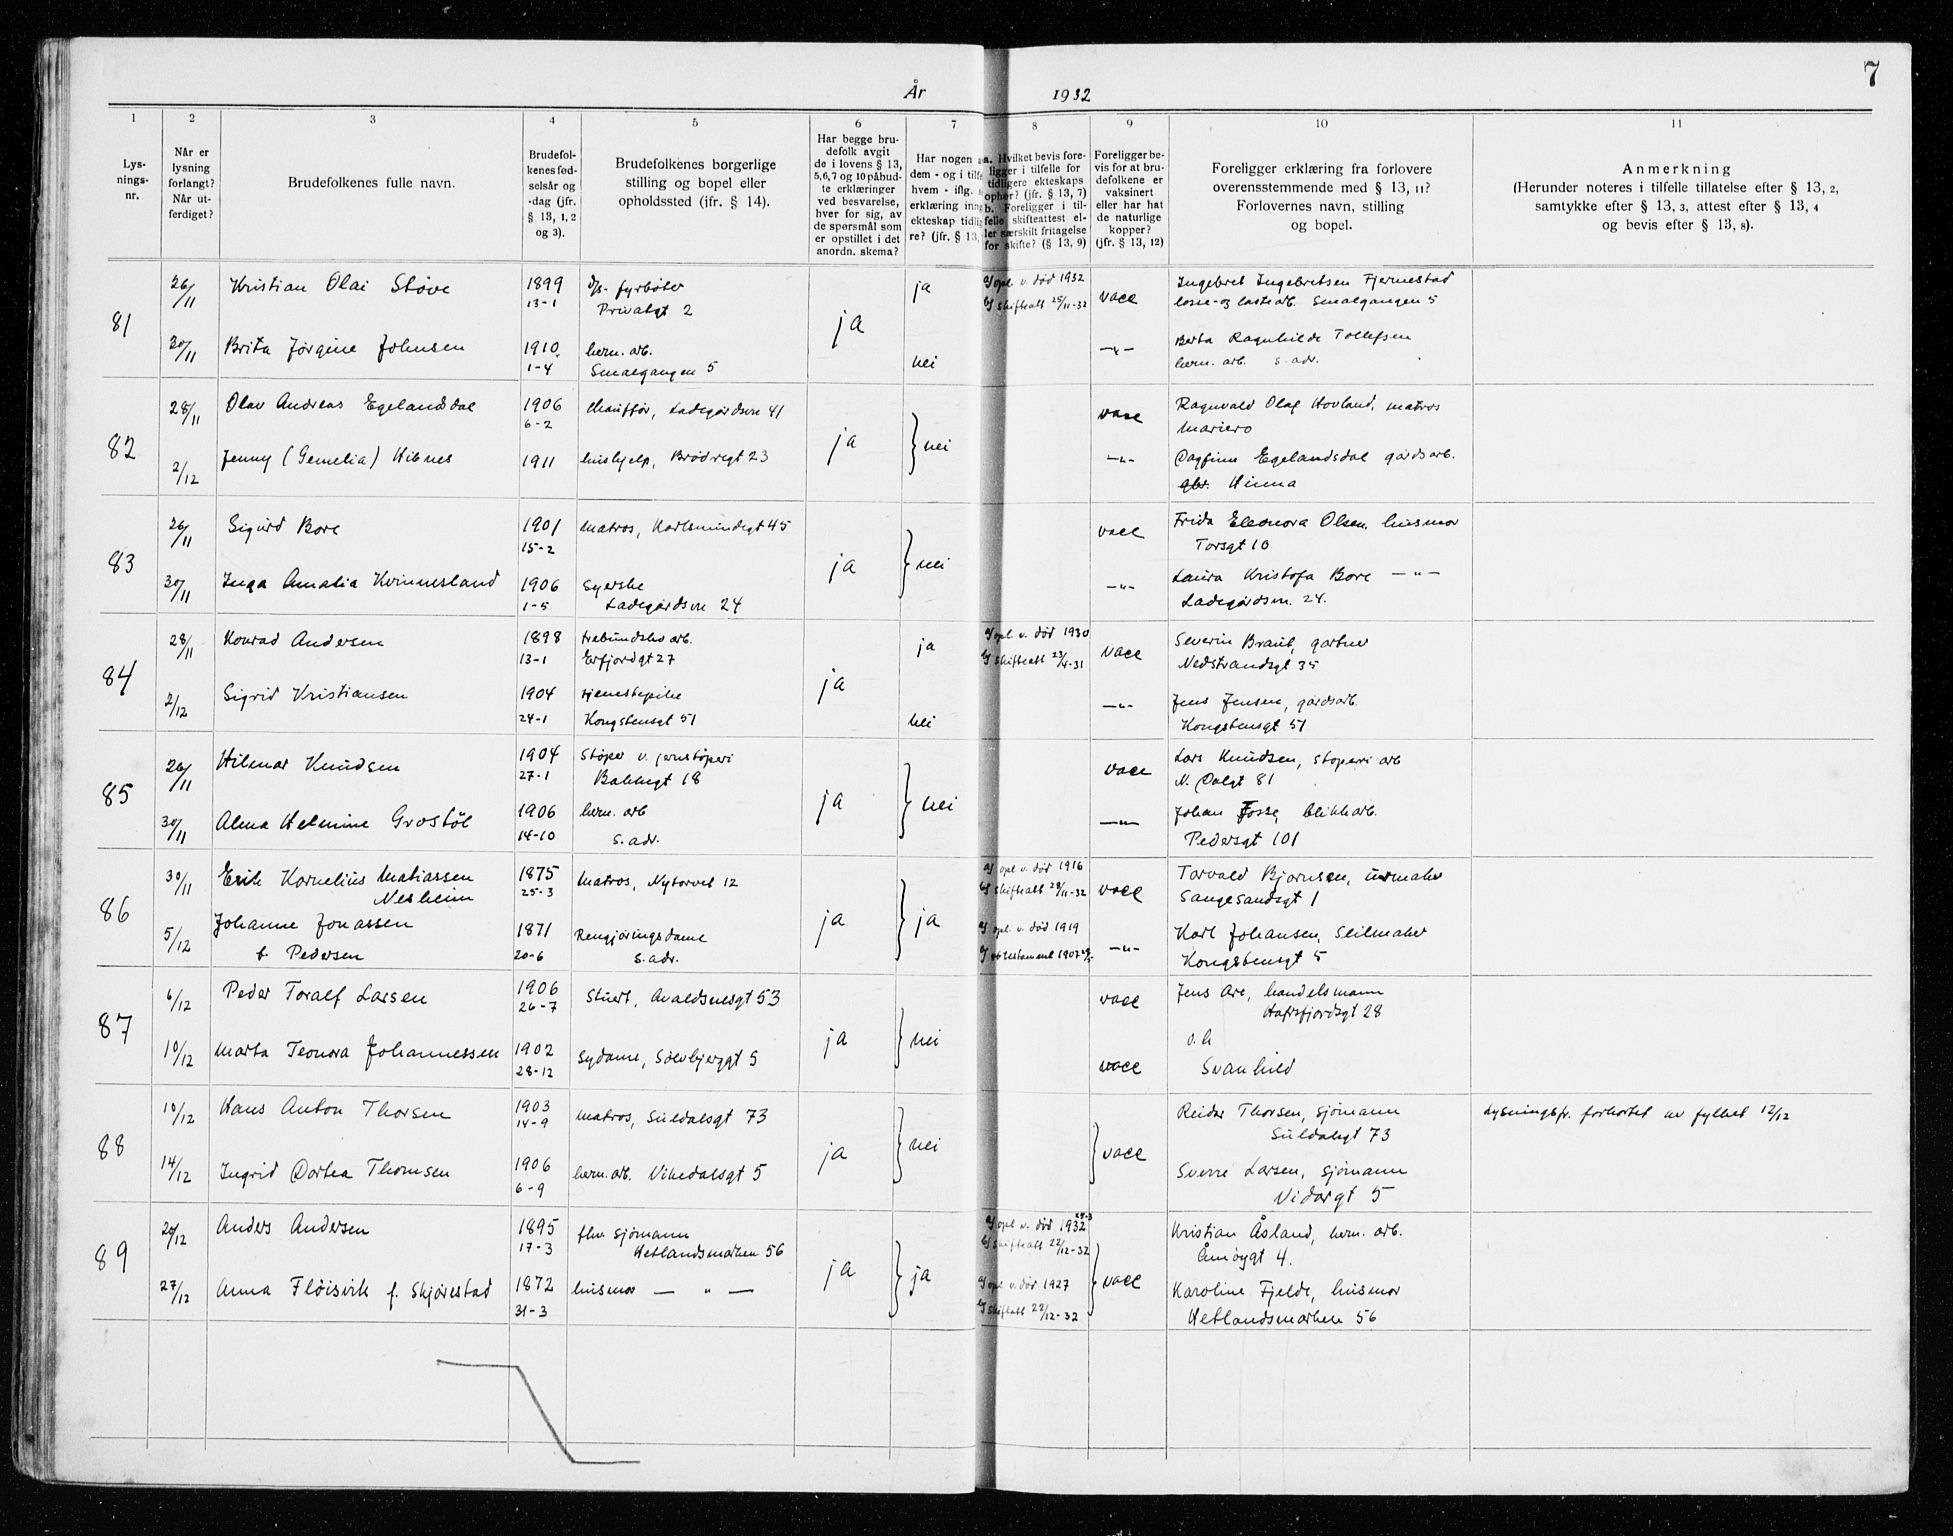 7
År 1932
1 2 3 4 5 6 7 8 9 10 11
Lys-
nings-
nr.
Når er
lysning
forlangt?
Når ut-
ferdiget?
Brudefolkenes fulle navn.
Brudefol-
kenes fød-
selsår og
-dag (jfr.
§ 13, 1, 2
og 3).
Brudefolkenes borgerlige
stilling og bopel eller
opholdssted (jfr. § 14).
Har begge bru-
defolk avgit
de i lovens § 13,
5,6,7 og 10 påbud-
te erklæringer
ved besvarelse,
hver for sig, av
de spørsmål som
er opstillet i det
anordn. skema?
Har nogen a
dem - og i tilfe
hvem - iflg.
erklæring inng
ekteskap tidlig
re? (jfr. § 13,
a. Hvilket bevis fore-
ligger i tilfelle for
tidligere ekteskaps
ophør? (jfr. § 13, 7)
b. Foreligger i til-
felle skifteattest el-
ler særskilt fritagelse
for skifte? (§ 13, 9)
Foreligger be-
vis for at bru-
defolkene er
vaksinert
eller har hat
de naturlige
kopper?
(jfr. § 13, 12)
Foreligger erklæring fra forlovere
overensstemmende med § 13, 11?
Forlovernes navn, stilling
og bopel.
Anmerkning
(Herunder noteres i tilfelle tillatelse efter § 13, 2,
samtykke efter § 13, 3, attest efter § 13, 4
og bevis efter § 13, 8).
81
26/11 Kristian Olai Støve 1899 d/s. fyrbøter ja a/ opl. v. død 1932 vacc Ingebret Ingebretsen Fjermestad
13-1 Privatgt 2 ja b/ skifteatt 25/11-32 losse- og lastearb. Smalgangen 5
30/11 Brita Jørgine Johnsen 1910 herm. arb. —„— Berta Ragnhilde Tollefsen
1-4 Smalgangen 5 nei herm. arb. s. adr.
82
28/11 Olav Andreas Egelandsdal 1906 Chauffør, Ladegårdsvn 41 vacc Ragnvald Olaf Hovland, matros
6-2 ja nei Mariero
2/12 Jenny (Gemelia) Hibnes 1911 hushjelp, Brødregt 23 —„— Dagfinn Egelandsdal gårdsarb.
Hinna
83
26/11 Sigurd Bore 1901 Matros, Karlsmindegt 45 vacc Frida Eleonora Olsen, husmor
15-2 ja nei Torsgt 10
30/11 Inga Amalia Kvinnesland 1906 Syerske —„— Laura Kristofa Bore —„—
1-5 Ladegårdsvn 24 Ladegårdsvn. 24.
84
28/11 Konrad Andersen 1898 trebundsbo arb. ja a/ opl. v. død 1930 vacc Severin Braut, gartner
13-1 Erfjordgt 27 ja b/ skifteatt 23/4-31 Nedstrandsgt 35
2/12 Sigrid Kristiansen 1904 tjenestepike —„— Jens Jensen, gårdsarb.
24-1 Kongstensgt 51 nei Kongstensgt 51
85
26/11 Hilmar Knudsen 1904 Støper v. jernstøperi vacc Lars Knudsen, støperi arb
27-1 Bakkegt 18 ja nei N. Dalgt 81
30/11 Alma Helmine Grostøl 1906 herm. arb —„— Johan Fosse, blikkarb.
14-10 s. adr. Pedersgt 101
86
30/11 Erik Kornelius Matiassen 1875 Matros, Nytorvet 12 a/ opl v. død 1916 vacc Torvald Bjørnsen, urmaker
Nesheim 25-3 b/ skifteatt 28/11-32 Sangesandsgt 1
5/12 Johanne Jonassen 1871 Rengjøringsdame ja ja a/ opl. v. død 1919 —„— Karl Johansen, Seilmaker
f. Pedersen 20-6 s. adr. testament 1907 Kongstensgt 5
87
6/12 Peder Toralf Larsen 1906 Stuert, Avaldsnesgt 53 vacc Jens Are, handelsmann
26-7 ja nei Hafrsfjordsgt 28
10/12 Marta Teonora Johannessen 1902 Sydame, Solvbjerggt 5 vacc o.h
28-12 Svanhild
88
10/12 Hans Anton Thorsen 1903 Matros, Suldalsgt 73 Reidar Thorsen, sjømann Lysningsfr. forkortet av fylket 12/12
14-9 ja nei vacc Suldalsgt 73
14/12 Ingrid Dortea Thomsen 1906 herm. arb. Vikedalsgt 5 Sverre Larsen, sjømann
6-9 Vidargt 5
89
20/12 Anders Andersen 1895 fhv sjømann a/ opl v. død 1932 Kristian Åsland, herm. arb.
17-3 Hetlandsmarken 56 b/ skifteatt 22/12-32 Åmøygt 4.
27/12 Anna Fløisvik f. Skjørestad 1872 husmor — „ — ja ja a/ opl v. død 1927 vacc Karoline Fjelde, husmor
31-3 b/ skifteatt 22/12-32 Hetlandsmarken 56